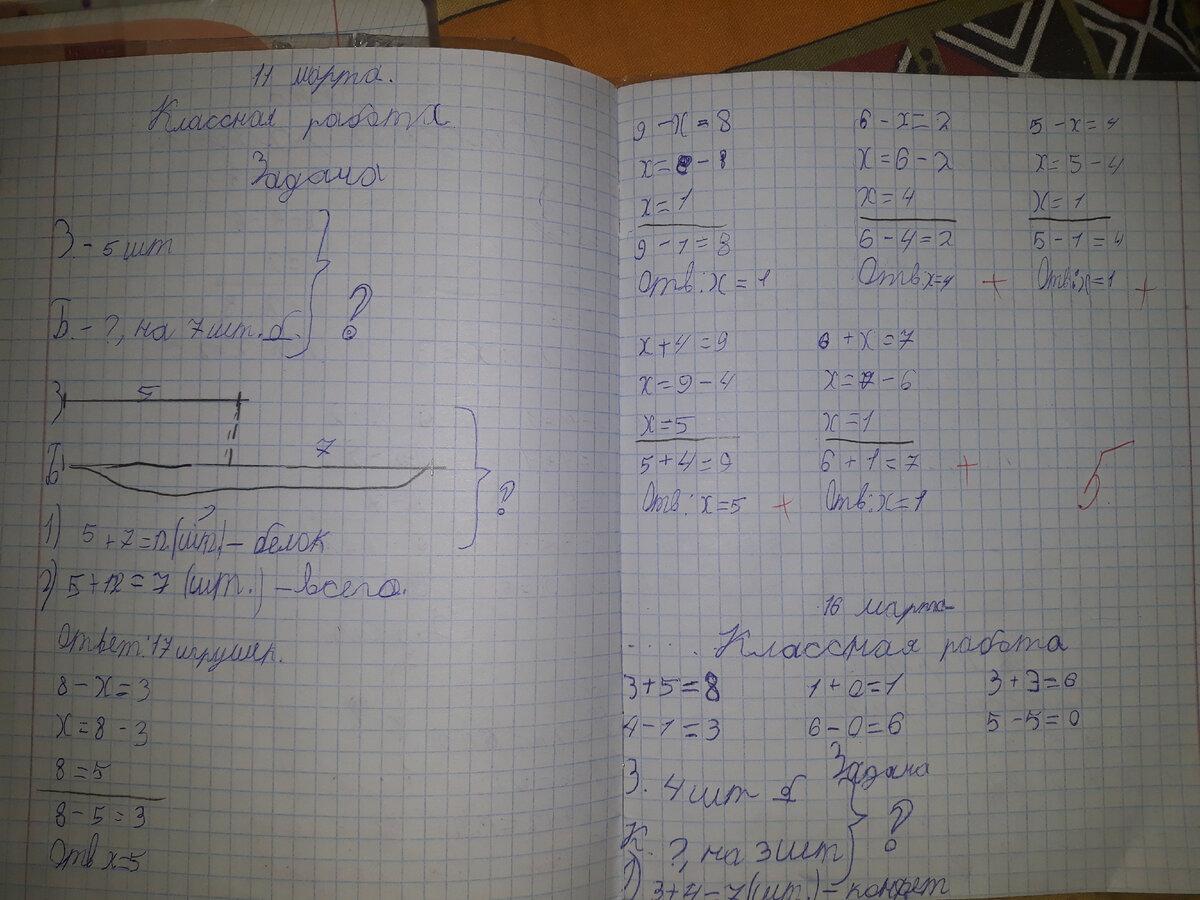 11 марта.
Классная работа.
Задача
З. - 5 шт
?
Б. - ?, на 7 шт. б.
З 5
Б 7
?
1) 5 + 7 = 12 (шт.) - белок
2) 5 + 12 = 7 (шт.) - всего.
Ответ: 17 игрушек.
8 - х = 3
х = 8 - 3
8 = 5
8 - 5 = 3
Отв х = 5
9 - х = 8 6 - х = 2 5 - х = 4
х = 9 - 8 х = 6 - 2 х = 5 - 4
х = 1 х = 4 х = 1
9 - 1 = 8 6 - 4 = 2 5 - 1 = 4
Отв: х = 1 Отв х = 4 + Отв: х = 1 +
х + 4 = 9 6 + х = 7
х = 9 - 4 х = 7 - 6
х = 5 х = 1
5 + 4 = 9 6 + 1 = 7 +
Отв: х = 5 + Отв: х = 1
5
16 марта
Классная работа
3 + 5 = 8 1 + 0 = 1 3 + 3 = 6
4 - 1 = 3 6 - 0 = 6 5 - 5 = 0
Задача
З. 4 шт б
?
К. ?, на 3 шт
1) 3 + 4 = 7 (шт.) - конфет